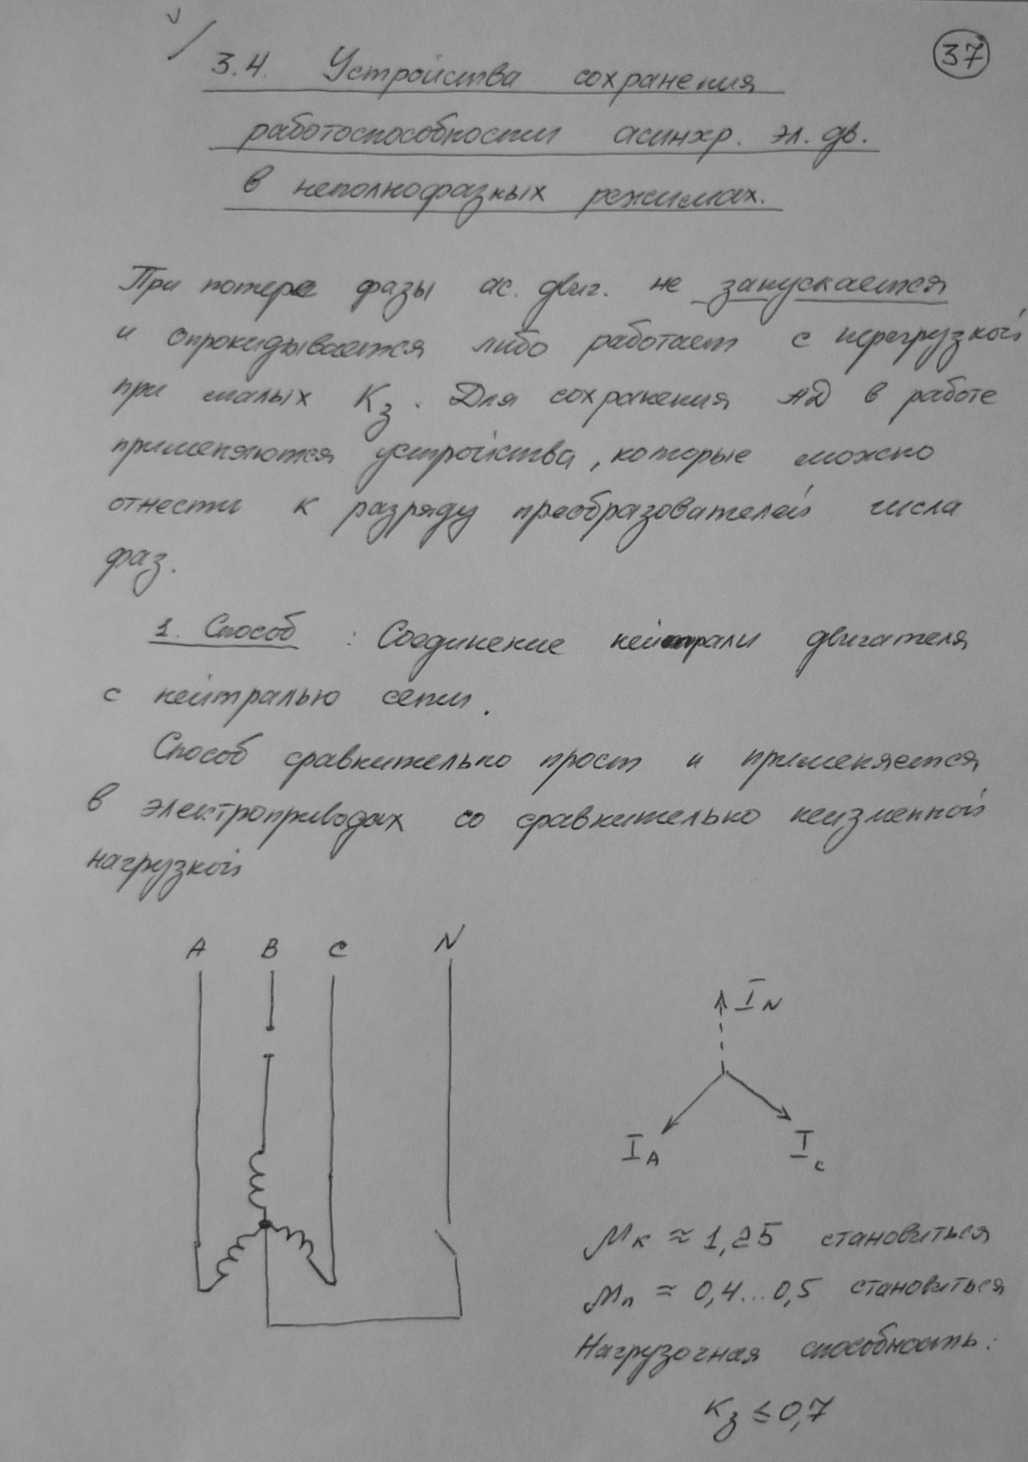 37
3.4. Устройства сохранения
работоспособности асинхр. эл. дв.
в неполнофазных режимах.
При потере фазы ас. двиг. не запускается
и опрокидывается либо работает с перегрузкой
при малых Kз. Для сохранения АД в работе
применяются устройства, которые можно
отнести к разряду преобразователей числа
фаз.
1. Способ : Соединение нейтрали двигателя
с нейтралью сети.
Способ сравнительно прост и применяется
в электроприводах со сравнительно неизменной
нагрузкой
A B C N
I N
I A I c
Mк ≈ 1,25 становиться
Mп ≈ 0,4...0,5 становиться
Нагрузочная способность:
Kз ≤ 0,7